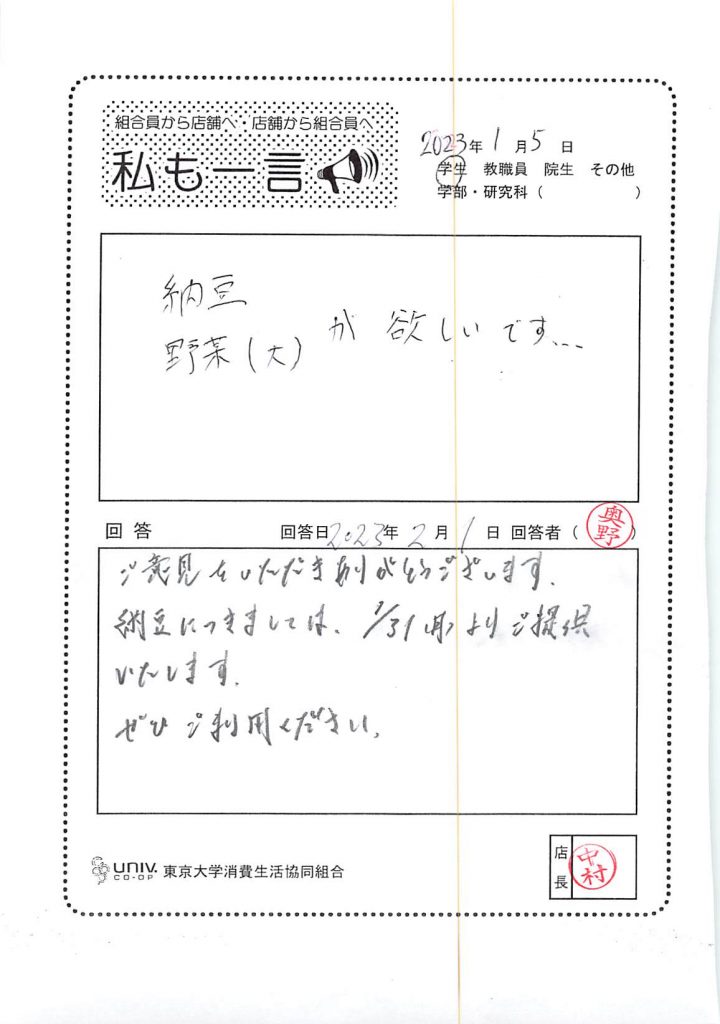 組合員から店舗へ・店舗から組合員へ
私も一言
2023年 1月 5日
学生 教職員 院生 その他
学部・研究科 ( )
納豆
野菜(大) が 欲しいです...
回答 回答日 2023年 2月 1日 回答者 ( 奥野 )
ご意見をいただきありがとうございます.
納豆につきましては、1/31 よりご提供
いたします.
ぜひ ご利用ください.
UNIV. CO-OP 東京大学消費生活協同組合
店長 中村